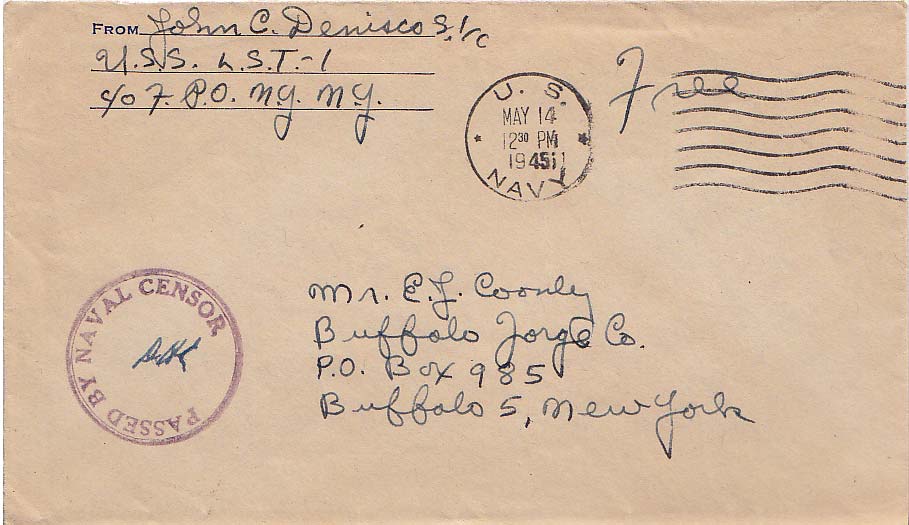 FROM John C. Denisco S.1/c
U.S.S. L.S.T.-1
c/o F.P.O. N.Y. N.Y.
U.S. NAVY
MAY 14
12 30 PM
1945
Free
PASSED BY NAVAL CENSOR
Mr. E.J. Coonly
Buffalo Forge Co.
P.O. Box 985
Buffalo 5, New York